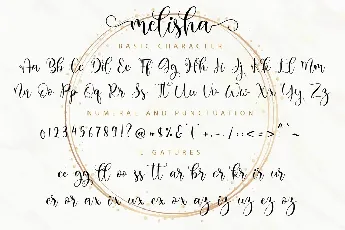 melisha
BASIC CHARACTER
Aa Bb Cc Dd Ee Ff Gg Hh Ii Jj Kk Ll Mm
Nn Oo Pp Qq Rr Ss Tt Uu Vv Ww Xx Yy Zz
NUMERAL AND PUNCTUATION
0123456789!?@#$%&*(+,-./:;<=>[^~
LIGATURES
cc gg ll oo ss tt ar br cr kr ir ur
er or ax ix ux ex ox az iz uz ez oz